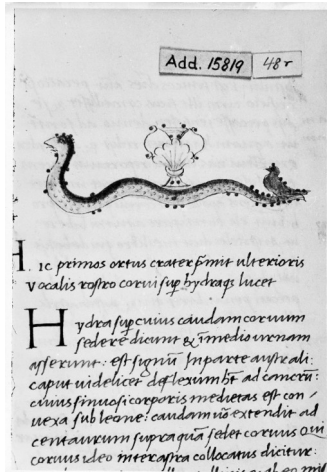 Add. 15819 48r
H. ic primos ortus crater p̄mit ulterioris
V ocalis rostro corui sup hydrags lucet
Hydra sup cuius caudam coruum
sedere dicunt & ī medio urnam
asserunt: est signū Inparte australi:
caput uidelicet deflexum h̄t ad cancrū:
cuius sinuosi corporis medietas est con /
uexa sub leone: caudam ū extendit ad
centaurum supra quā sedet coruus Qui
coruus ideo inter astra collocatus dicitur: